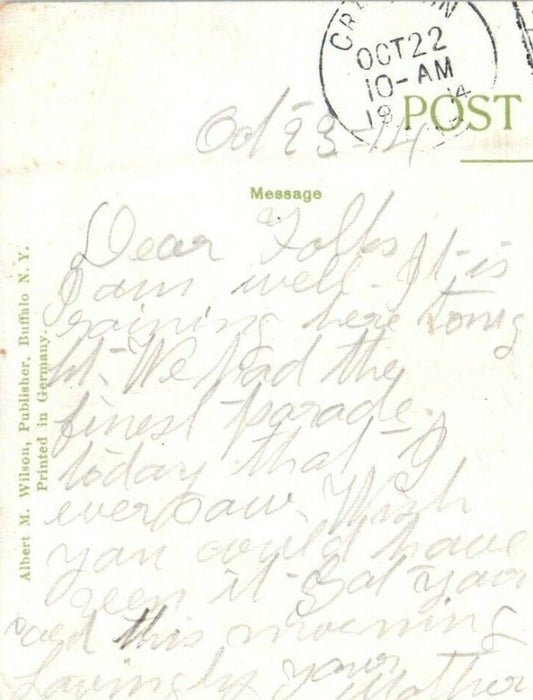 OCT 22
10-AM
19 14
POST
Oct 23-14
Message
Dear Folks
I am well. It is
raining here tonig
ht. We had the
finest parade
today that I
ever saw. Wish
you could have
seen it - Got your
card this morning
Lovingly your
Mother
Albert M. Wilson, Publisher, Buffalo N. Y.
Printed in Germany.